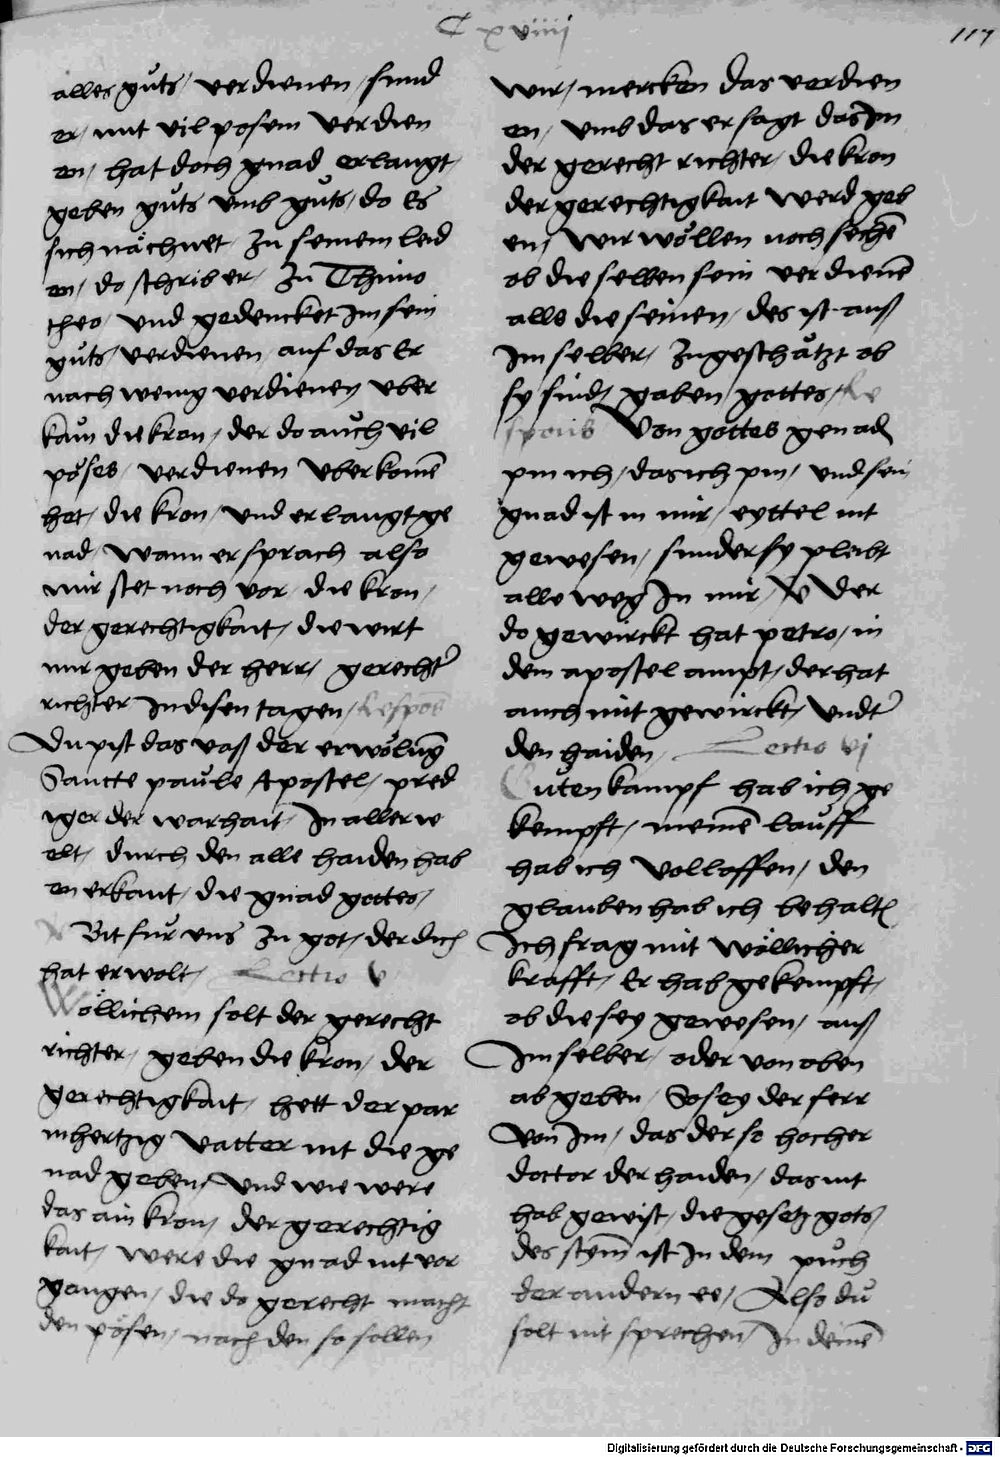 C xviiii
117
alles gůts / verdienen / sund
er / mit vil posem verdien
en / hat doch gnad erlangt /
geben gůts vmb gůts / do Es
sich nächnet / Zu seinem leid
en / do schrib er / Zu Thimo
theo / vnd gedencket Im sein
gůts / verdienen / auf das Er
nach wenig verdienen vber
kam die kron / der do aůch vil
pöses / verdienen vberkomē
hat / die kron / vnd erlangt ge
nad / Wann er sprach also
mir stet noch vor / die kron /
der gerechtigkait / die wirt
mir geben der herr / gerechter
richter In disen tagen / Respons
Du pist das vaß der erwölūg
Sancte paule Apostel / pred
iger der warhait / In aller w
elt / durch den alle haiden hab
en erkant / die gnad gottes /
V Bit für vns Zu got / der dich
hat erwolt / Lectio v
Wöllichem solt der gerecht
richter / geben die kron / der
gerechtigkait / hett der par
mhertzig vatter nit die ge
nad geben / vnd wie were
das ain kron / der gerechtig
kait / were die gnad nit vor
gangen / die do gerecht macht
den pösen / nach den so sollen
wir / mercken das verdien
en / vmb das er sagt das Im
der gerecht richter / die kron
der gerechtigkait werd geb
en / wir wöllen noch sechē
ob die selben sein verdienē
alle die seinen / des ist auß
Im selber / Zugeschätzt ob
sy sind / gaben gottes / Re
spons Von gottes genad
pin ich / das ich pin / vnd sein
gnad ist in mir / eyttel nit
gewesen / sunder sy pleibt
alle weg In mir / V Der
do gewirckt hat petro / in
dem apostel ampt / der hat
auch mit gewirckt / vnder
den haiden / Lectio vi
Gůten kampf hab ich ge
kempft / meinē lauff
hab ich volloffen / den
glauben hab ich behaltē
Ich frag mit wöllicher
krafft / Er hab gekempft /
ob die sey gewesen / auß
Im selber / oder von oben
ab geben / So sey der ferr
von Im / das der so hocher
doctor der haiden / das nit
hab gewist / die gesetz gots /
des stym̄ ist In dem půch
der andern ee / Also dů
solt nit sprechen In deinē
Digitalisierung gefördert durch die Deutsche Forschungsgemeinschaft - DFG